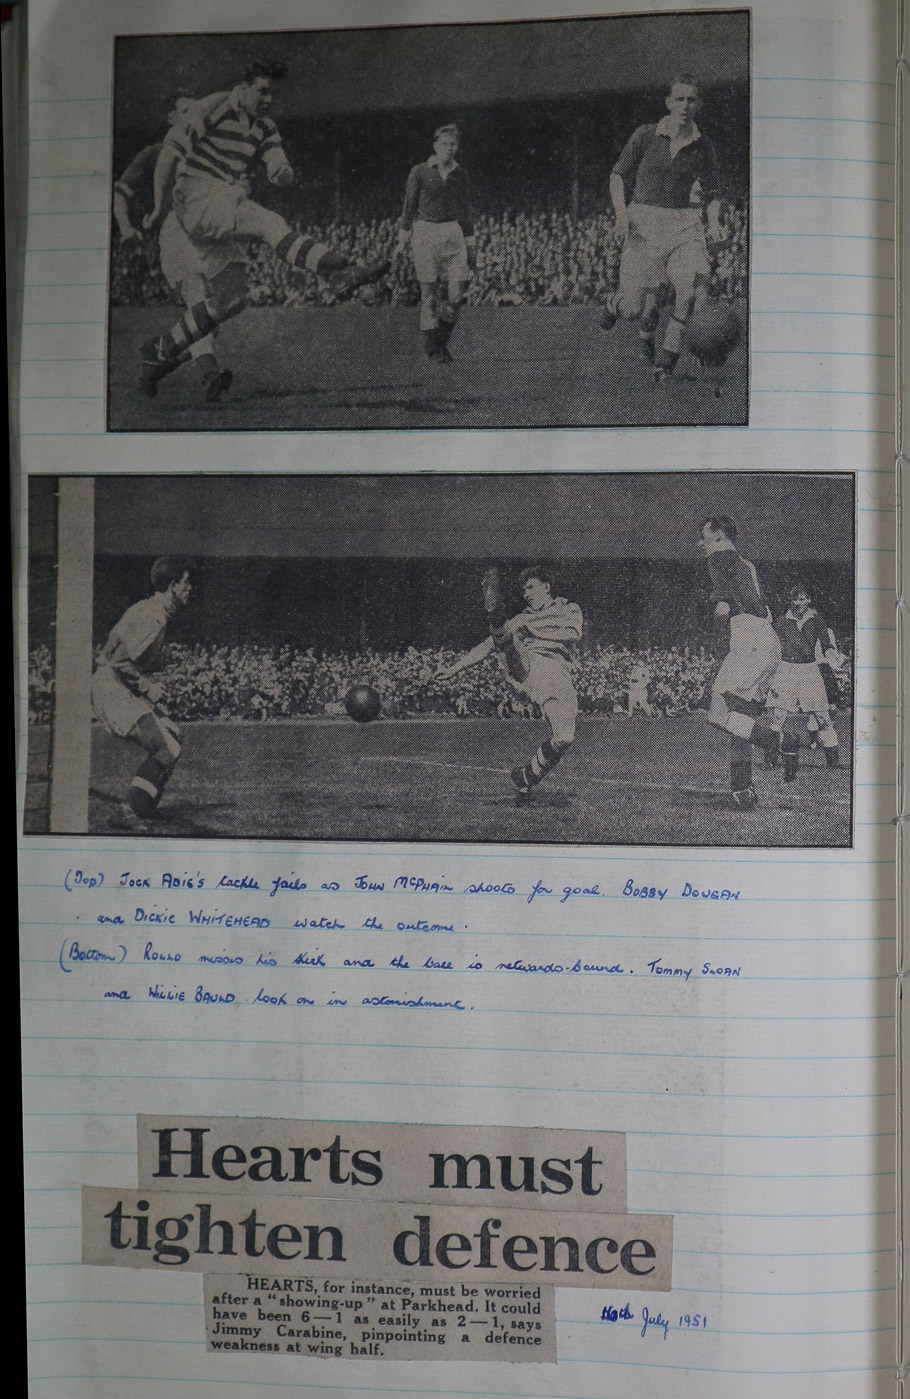 (Top) JOCK ADIE'S tackle fails as JOHN McPHAIL shoots for goal. BOBBY DOUGAN
and DICKIE WHITEHEAD watch the outcome.
(Bottom) ROLLO misses his kick and the ball is netwards-bound. TOMMY SLOAN
and WILLIE BAULD look on in astonishment.
Hearts must
tighten defence
HEARTS, for instance, must be worried
after a "showing-up" at Parkhead. It could
have been 6—1 as easily as 2—1, says
Jimmy Carabine, pinpointing a defence
weakness at wing half.
July 1951